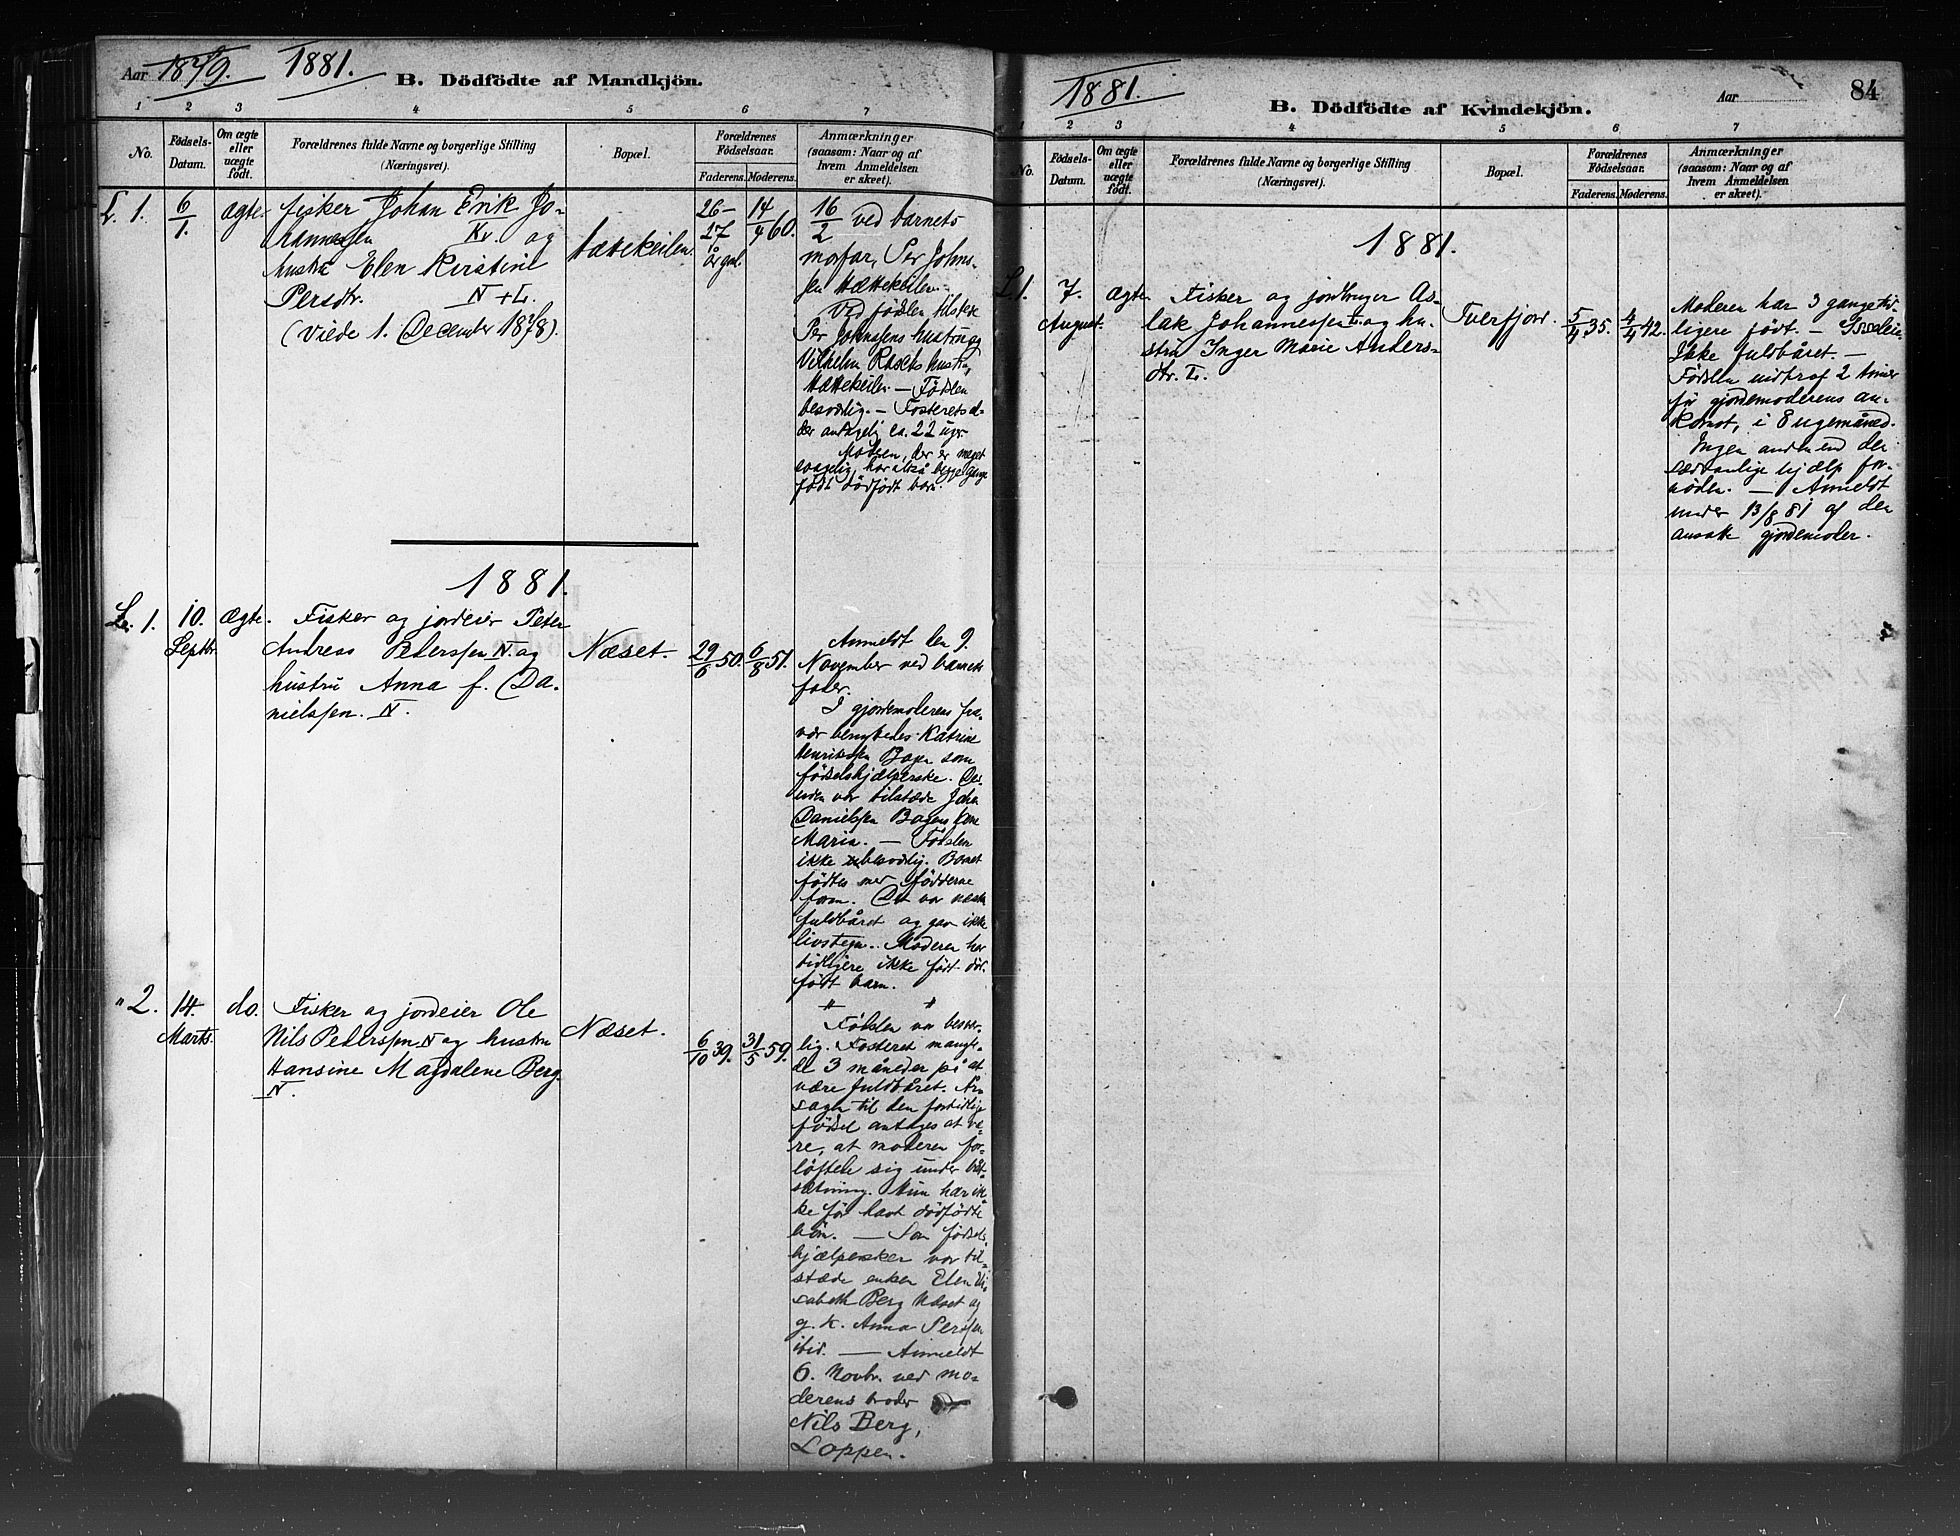 Aar 1879. 1881.
B. Dödfödte af Mandkjön.
1 2 3 4 5 6 7
No.
Födsels-
Datum.
Om ægte
eller
uægte
födt.
Forældrenes fulde Navne og borgerlige Stilling
(Næringsvei).
Bopæl.
Forældrenes
Födselsaar.
Faderens. Moderens.
Anmærkninger
(saasom: Naar og af
hvem Anmeldelsen
er skeet).
L. 1.
6/1.
ægte
fisker Johan Erik Jo-
hannessen Kv. og
hustru Elen Kirstine
Persdtr. N+L.
(Viede 1. December 1878).
Hættekeilen.
26-
27
år gml.
14/4 60.
16/2 ved barnets
morfar, Per Johns-
sen Hættekeilen.
Ved fødslen tilstede
Per Johnsens hustru og
Vilhelm hustru,
Hættekeilen. — Fødslen
besværlig. — Fosterets al-
der antagelig ca. 22 uger.
Moderen, der er meget
svagelig, har også begge gange
født dødfødt barn.
1881.
L. 1.
10.
Septbr.
Ægte.
Fisker og jordeier Peter
Andreas Pederssen N. og
hustru Anna f. Da-
nielssen. N.
Næset.
29/6 50.
6/8 51.
Anmeldt den 9.
November ved barnets
fader.
I gjordemoderens fra-
vær benyttedes Katrine
Henriksen Bogen som
fødselshjælperske. Des-
uden var tilstæde Johan
Danielssen Bogens kone
Maria. — Fødslen
ikke besværlig. Barnet
fødtes med fødderne
foran. Det var næsten
fuldbåret og gav ikke
livstegn. Moderen har
tidligere ikke født død-
født barn.
" 2.
14.
Marts.
do.
Fisker og jordeier Ole
Nils Pederssen N og hustru
Hansine Magdalene Berg.
N.
Næset.
6/10 39.
31/5 59.
" "
Fødslen var besvær-
lig. Fosteret mangle-
de 3 måneder på at
være fuldbåret. År-
sagen til den fortidlige
fødsel antages at væ-
re, at moderen for-
løftede sig under båt-
sætning. Hun har ik-
ke før havt dødfødte
børn. — Som fødsels-
hjælpersker var til-
stæde enken Elen Eli-
sabeth Berg Næset og
g. k. Anna Perssen
ibid. — Anmeldt
6. Novbr. ved mo-
derens broder
Nils Berg,
Loppen.
1881.
B. Dödfödte af Kvindekjön.
Aar
84
1 2 3 4 5 6 7
No.
Födsels-
Datum.
Om ægte
eller
uægte
födt.
Forældrenes fulde Navne og borgerlige Stilling
(Næringsvei).
Bopæl.
Forældrenes
Födselsaar.
Faderens. Moderens.
Anmærkninger
(saasom: Naar og af
hvem Anmeldelsen
er skeet).
1881.
L. 1.
7.
August.
ægte
Fisker og jordbruger As-
lak Johannessen L. og hu-
stru Inger Marie Anders-
dtr. L.
Tverfjord.
5/4 35.
4/4 42.
Moderen har 3 gange tid-
ligere født. — Sædeleie.
Ikke fuldbåret. —
Fødslen indtraf 2 timer
før gjordemoderens an-
komst, i 8 ugemåned.
Ingen anden end den
sædvanlige hjælp for-
nøden. — Anmeldt
under 13/8 81 af den
ansatte gjordemoder.